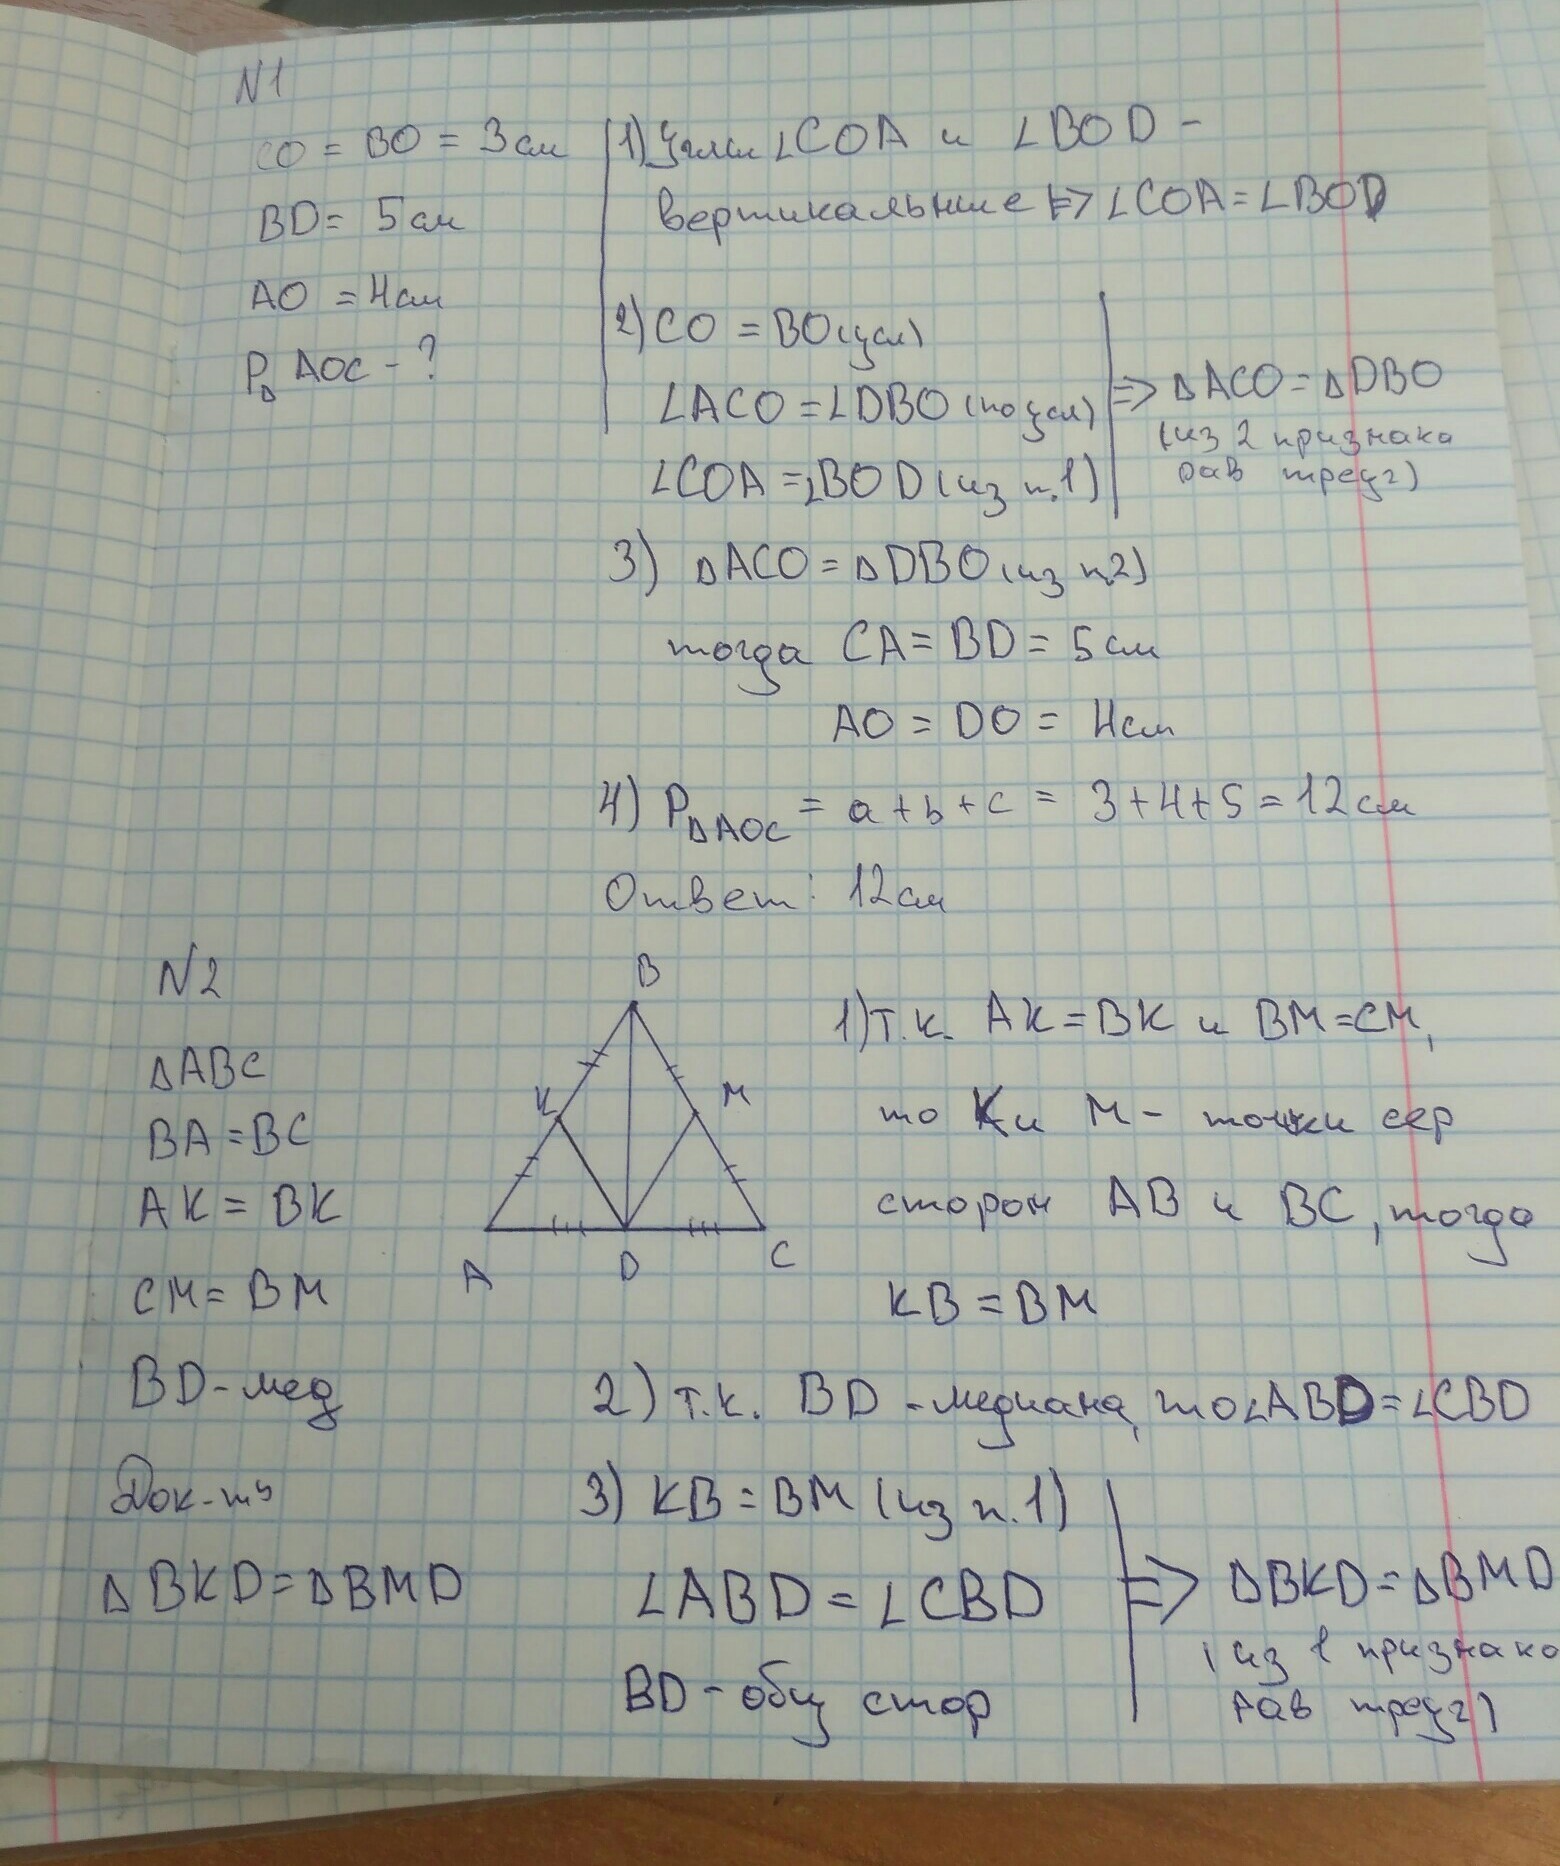 N1
CO = BO = 3см
BD = 5см
AO = 4см
P△ AOC - ?
1) Углы ∠COA и ∠BOD -
вертикальные => ∠COA = ∠BOD
2) CO = BO (усл)
∠ACO = ∠DBO (по усл)
∠COA = ∠BOD (из п.1)
=> △ACO = △DBO
(из 2 признака
рав треуг)
3) △ACO = △DBO (из п2)
тогда CA = BD = 5см
AO = DO = 4см
4) P△AOC = a + b + c = 3+4+5 = 12см
Ответ: 12см
N2
△ABC
BA = BC
AK = BK
CM = BM
BD - мед
Док-ть
△BKD = △BMD
B
K
M
A
D
C
1) т.к. AK = BK и BM = CM,
то K и M - точки сер
сторон AB и BC, тогда
KB = BM
2) т.к. BD - медиана, то ∠ABD = ∠CBD
3) KB = BM (из п.1)
∠ABD = ∠CBD
BD - общ стор
=> △BKD = △BMD
(из 1 признака
рав треуг)